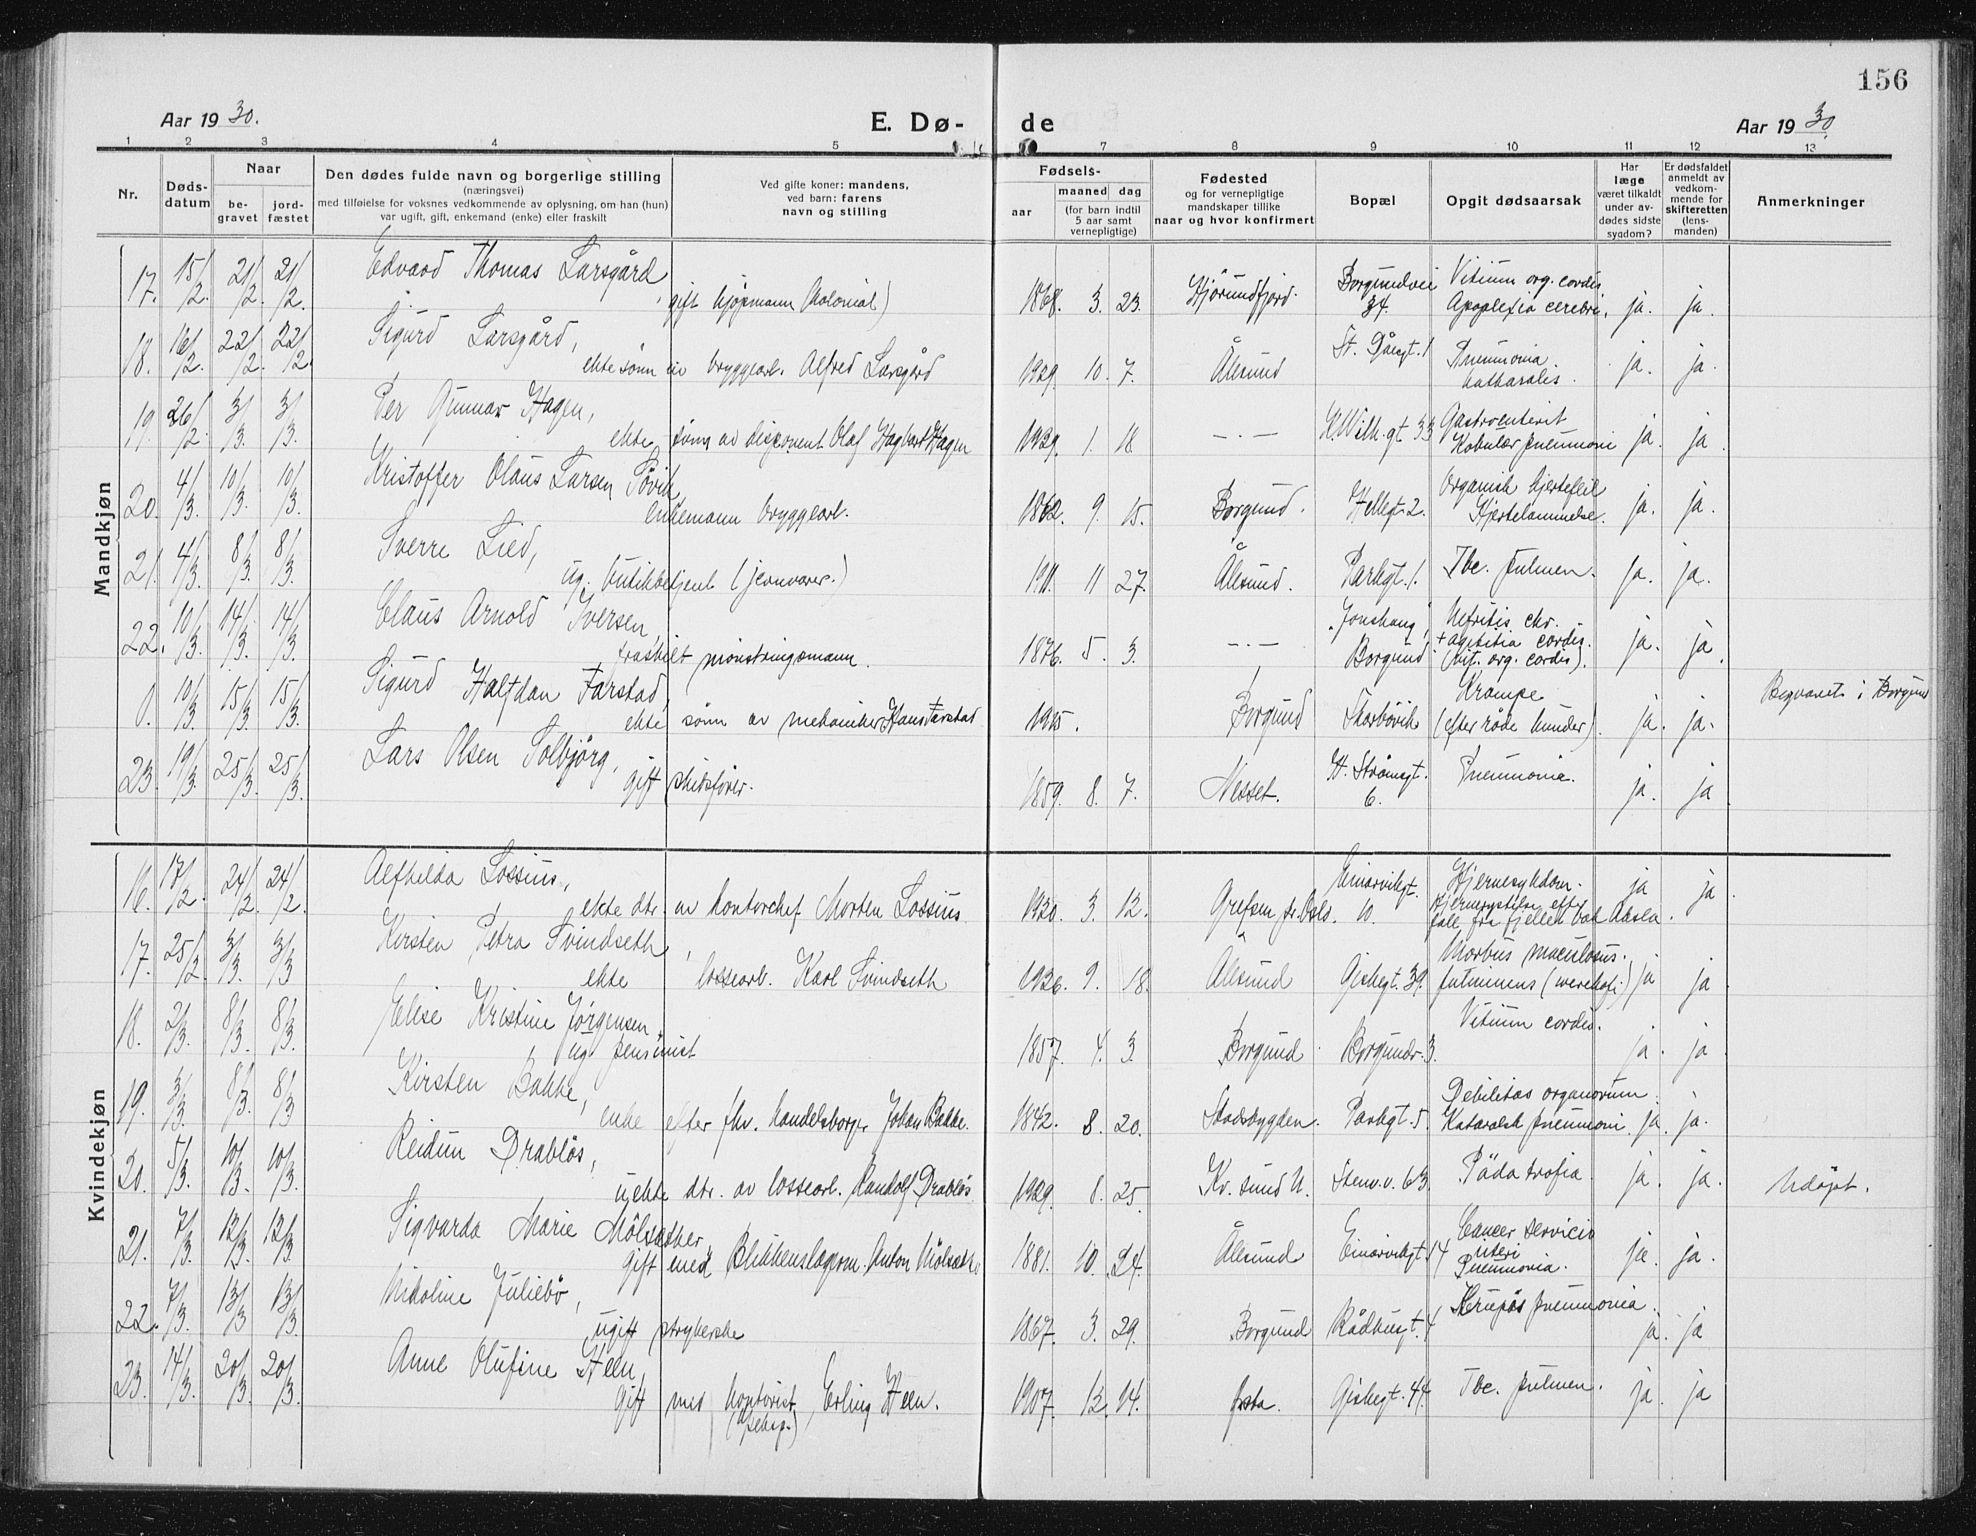 156
Aar 1930.
E. Dø-
de
Aar 1930.
1 2 3 4 5 7 8 9 10 11 12 13
Nr.
Døds-
datum
Naar
be-
gravet
jord-
fæstet
Den dødes fulde navn og borgerlige stilling
(næringsvei)
med tilføielse for voksnes vedkommende av oplysning, om han (hun)
var ugift, gift, enkemand (enke) eller fraskilt
Ved gifte koner: mandens,
ved barn: farens
navn og stilling
Fødsels-
aar
maaned dag
(for barn indtil
5 aar samt
vernepligtige)
Fødested
og for vernepligtige
mandskaper tillike
naar og hvor konfirmert
Bopæl
Opgit dødsaarsak
Har
læge
været tilkaldt
under av-
dødes sidste
sygdom?
Er dødsfaldet
anmeldt av
vedkom-
mende for
skifteretten
(lens-
manden)
Anmerkninger
Mandkjøn
17. 15/2. 21/2. 21/2. Edvard Thomas Larsgård, gift kjøpmann (kolonial) 1868. 3. 23. Hjørundfjord. Borgundvei 34. Vitium org. cordis Apoplexia cerebri. ja. ja.
18. 16/2. 22/2. 22/2. Sigurd Larsgård, ekte sønn av bryggearb. Alfred Larsgård 1929. 10. 7. Ålesund Pneumonia katharalis. ja. ja.
19. 26/2. 3/3. 3/3. Per Gunnar Hagen, ekte sønn av disponent Olaf Hagbart Hagen 1929. 1. 18. — . — K. Wilh. gt. 33 Gastroenterit Lobulær pneumoni ja. ja.
20. 4/3. 10/3. 10/3. Kristoffer Olaus Larsen Søvik, enkemann bryggearb. 1862. 9. 15. Borgund. Hellegt. 2. Organisk hjertefeil Hjertelammelse. ja. ja.
21. 4/3. 8/3. 8/3. Sverre Lied, ug. butikkbetjent (jernvarer.) 1911. 11 27. Ålesund. Parkgt. 1. Tbc. pulmon. ja. ja.
22. 10/3. 14/3. 14/3. Claus Arnold Iversen, fraskilt mønstringsmann. 1876. 5. 3. — . — "Jonshaug", Borgund Nefritis chr. + cordis. (vit. org. cordis). ja. ja.
0. 10/3. 15/3. 15/3. Sigurd Halfdan Farstad, ekte sønn av mekaniker Hans Farstad 1915. Borgund Skarbøvik Krampe (efter røde hunder). ja. ja. Begravet i Borgund
23. 19/3. 25/3. 25/3. Lars Olsen Solbjørg, gift skibsfører. 1859. 8. 7. Nesset. H. Strømsgt. 6. Pneumonia. ja. ja.
Kvindekjøn
16. 17/2. 24/2. 24/2. Alfhilda Lossius, ekte dtr. av kontorchef Morten Lossius 1920. 3. 12. Grefsen pr. Oslo. Einarvikgt. 10. Hjernesykdom. Hjernerystelse efter fall fra fjellet bak Aksla. ja ja.
17. 25/2. 3/3. 3/3. Kirsten Petra Svindseth, ekte lossearb. Karl Svindseth 1926. 9. 18. Ålesund Giskegt. 39. Morbus maculosus. fulminens (werlhofi.) ja ja.
18. 2/3. 8/3. 8/3. Elise Kristine Jørgensen, ug. pensionist 1857. 4. 3 Borgund. Borgundv. 3. Vitium cordis. ja. ja.
19. 3/3. 8/3. 8/3 Kirsten Bakke, enke efter fhv. handelsborger Johan Bakke. 1842. 8. 20. Stadsbygden. Parkgt. 5. Debilitas organorum Katarralsk pneumoni. ja. ja.
20. 5/3. 10/3. 10/3. Reidun Drabløs, uekte dtr. av lossearb. Randolf Drabløs. 1929. 8. 25. Kr. sund N. Stenv.v. 63. Pädatrofia. ja. ja. Udøpt.
21. 7/3. 12/3. 12/3 Sigvarda Marie Mölsæther, gift med Blikkenslagerm. Anton Mölsæth. 1881. 10. 24. Ålesund Einarvikgt. 14 Cancer servicis uteri Pneumonia. ja. ja.
22. 7/3. 13/3 13/3 Nikoline Juliebø, ugift strykerske 1867. 3. 29. Borgund Rådhusgt. 4 Krupøs pneumonia. ja. ja
23. 14/3. 20/3. 20/3. Anne Olufine Steen, gift med kontorist Erling Steen. 1907. 12. 14. Ørsta. Giskegt. 44. Tbc. pulmon. ja. ja